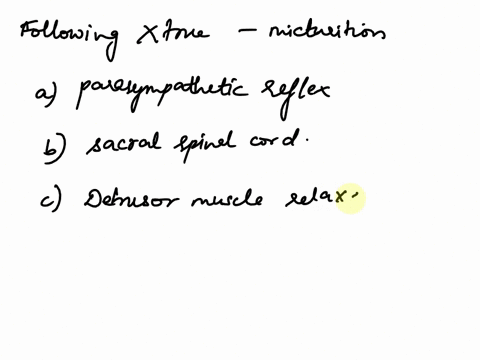 Following X true - micturition
a) parasympathetic reflex
b) sacral spinal cord.
c) Detrusor muscle relax.